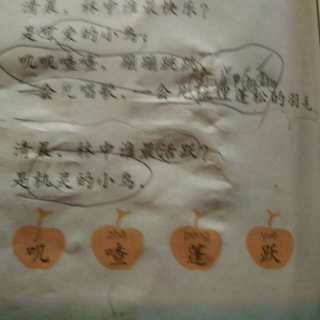 清晨、林中谁最快乐？
是可爱的小鸟，
叽叽喳喳、蹦蹦跳跳，
一会儿唱歌、一会儿梳理蓬松的羽毛，
清晨、林中谁最活跃？
是机灵的小鸟，
zhā péng yuè
叽 喳 蓬 跃